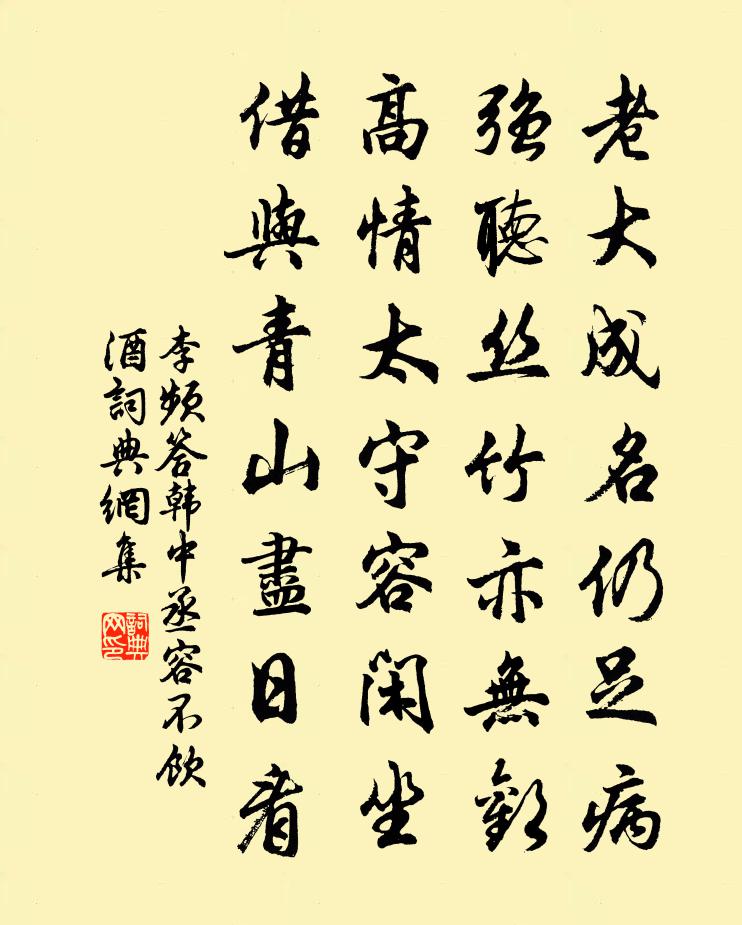 老大成名仍足病
強聽丝竹亦無歡
高情太守容閑坐
借與青山盡日看
李频答韩中丞容不飲
酒詞典網集
詞典网印